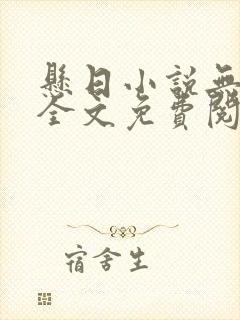 懸日小說無
全文免費閱
宿舍生